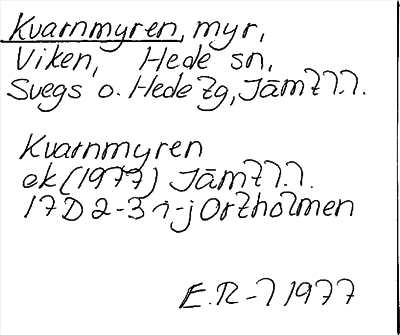 Kvarnmyren, myr,
Viken, Hede sn,
Svegs o. Hede tg, Jämtl.l.
Kvarnmyren
ek (1977) Jämtl.l.
17D 2-3 i-j Ortholmen
E.R-l 1977